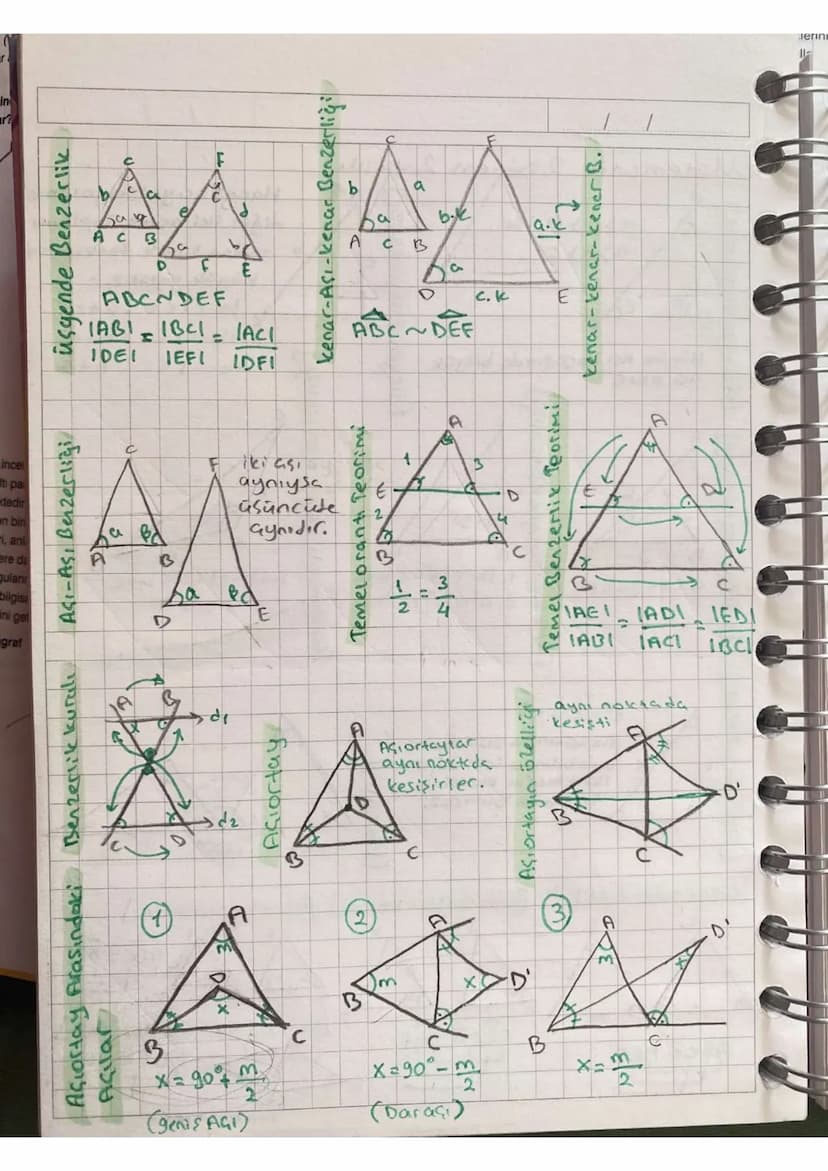 / /
üçgende Benzerlik
C
b c a
a b
A c B
F
e c d
a b
D f E
ABC~DEF
|AB| = |BC| = |AC|
|DE| |EF| |DF|
kenar-Açı-kenar Benzerliği
C
b a
a
A c B
F
b.k a.k
a
D c.k E
ABC ~ DEF
kenar-kenar-kenar B.
Açı-Açı Benzerliği
C
a b
A B
F
a b
D E
iki açı
aynıysa
üçüncüde
aynıdır.
Temel orantı Teorimi
A
1 3
E D
2 4
B C
1 = 3
2 4
Temel Benzerlik Teorimi
A
E D
B C
|AE| = |AD| = |ED|
|AB| |AC| |BC|
Benzerlik kuralı
A B
d1
C D
d2
Açıortay
A
D
B C
Açıortaylar
aynı noktada
kesişirler.
Açıortayın özelliği
aynı noktada
kesişti
A
B D'
C
Açıortay Arasındaki
Açılar
1
A
m
D
x
B C
x = 90° + m
2
(geniş Açı)
2
A
B m x D'
C
x = 90° - m
2
(Dar açı)
3
A D'
m x
B C
x = m
2